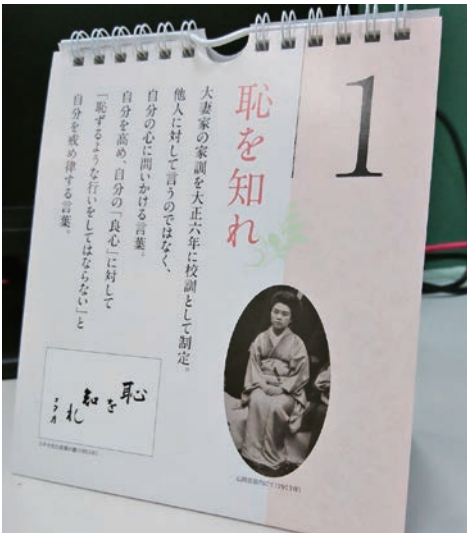 1
恥を知れ
大妻家の家訓を大正六年に校訓として制定。
他人に対して言うのではなく、
自分の心に問いかける言葉。
自分を高め、自分の「良心」に対して
「恥ずるような行いをしてはならない」と
自分を戒め律する言葉。
恥
を
知
れ
コタカ